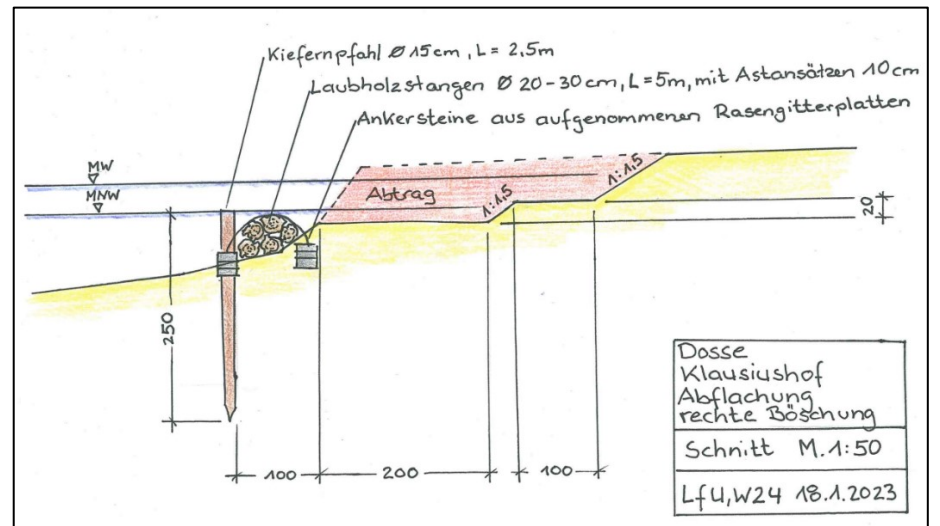 Kiefernpfahl Ø 15cm, L= 2,5m
Laubholzstangen Ø 20-30cm, L=5m, mit Astansätzen 10cm
Ankersteine aus aufgenommenen Rasengitterplatten
MW
MNW
Abtrag
1:1,5
1:1,5
20
250
100
200
100
Dosse
Klausiushof
Abflachung
rechte Böschung
Schnitt M. 1:50
LfU, W24 18.1.2023